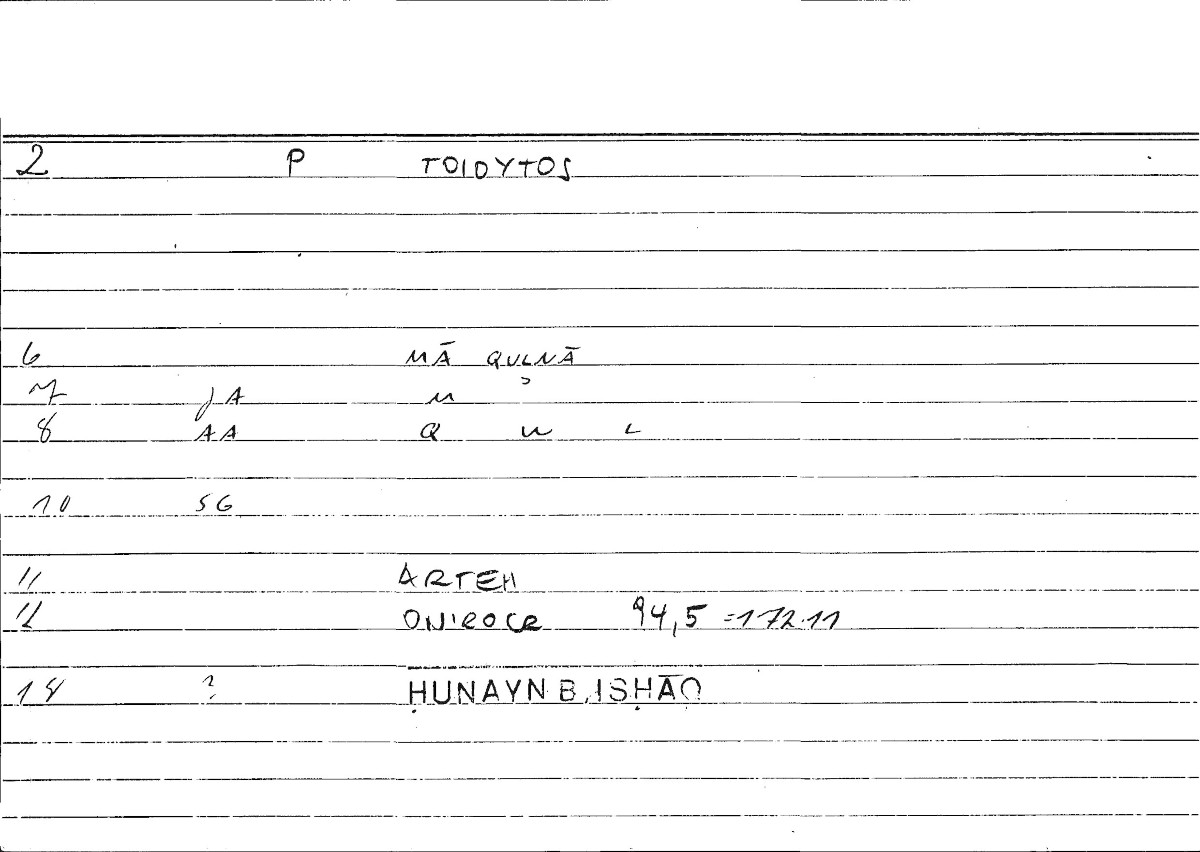 2 P TOIOYTOS
6 MĀ QULNĀ
7 JA M
8 AA Q W L
10 SG
11 ARTEM
12 ONIROCR 94,5 =172.11
18 ? ḤUNAYN B.ISḤĀQ